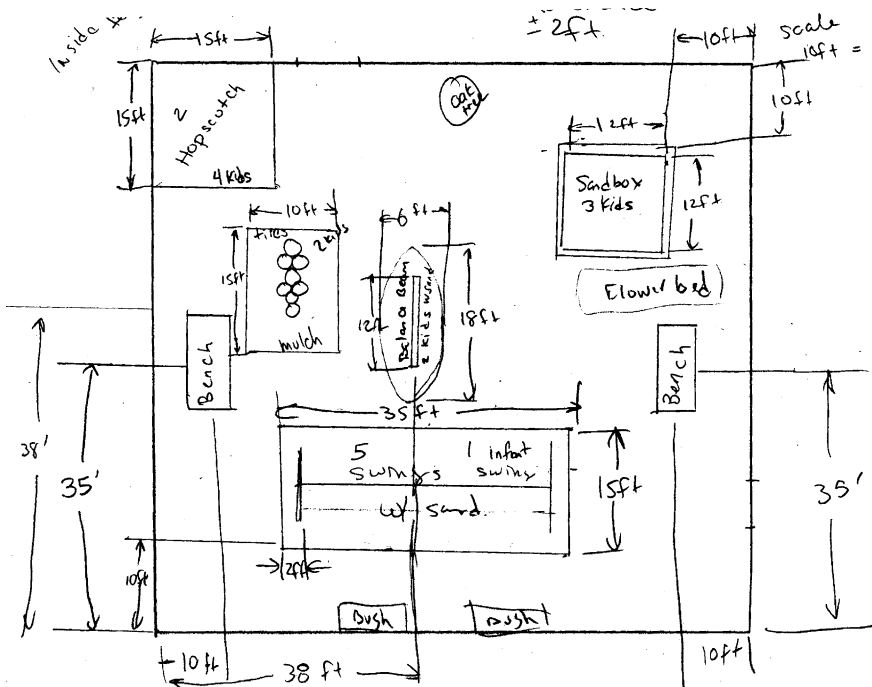 Inside
± 2ft
15ft
10ft
scale
10ft =
15ft
2
Hopscotch
4 kids
Oak
tree
10ft
12ft
Sandbox
3 kids
12ft
10ft
tires
2 kids
15ft
mulch
6 ft
12ft
Balance Beam
2 kids w sand
18ft
Flower bed
Bench
Bench
38'
35'
35 ft
5
swings
1 infant
swing
w/ sand
15ft
35'
10ft
2ft
Bush
Bush
10ft
38 ft
10ft